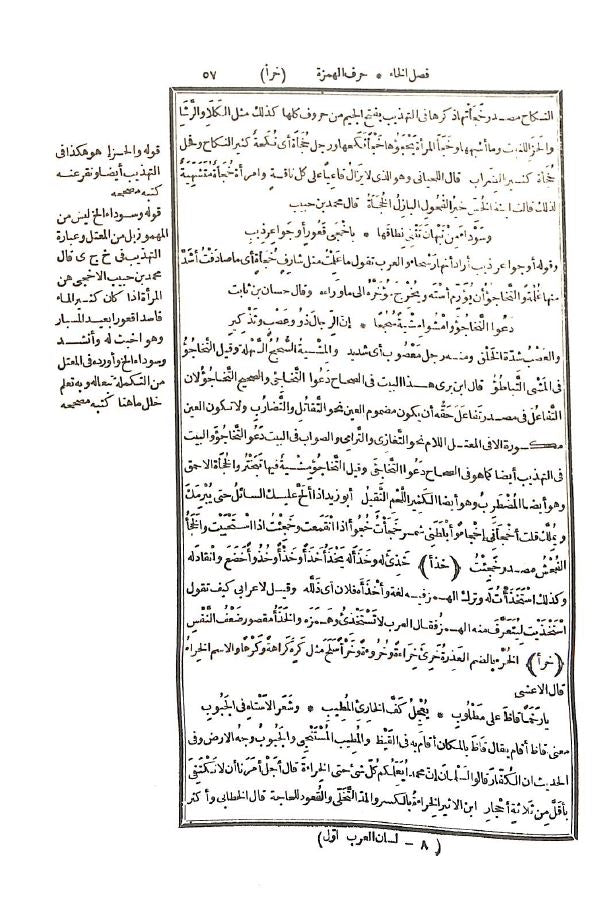 فصل الخاء * حرف الهمزة (خرأ) ٥٧
النكاح مصدر خجأتها ذكرها فى التهذيب بفتح الجيم من حروف كلها كذلك مثل الكلا والرشا
والحزا للنبت وما أشبهها وخجأ المرأة يخجؤها خجأ نكحها ورجل خجأة أى نكحة كثير النكاح وفحل
خجأة كثير الضراب قال اللحيانى وهو الذى لا يزال قاعيا على كل ناقة وامرأة خجأة متشهية
لذلك قالت ابنة الخس خير الفحول البازل الخجأة قال محمد بن حبيب
وسوداء من نبهان تثنى نطاقها * بأخجى قعور أو جواعر ذيب
وقوله أو جواعر ذيب أراد أنها رسحاء والعرب تقول ما علمت مثل شارف خجأة أى ما صادفت أشد
منها غلمة والتخاجؤ أن يؤرم استه ويخرج مؤخره الى ما وراءه وقال حسان بن ثابت
دعوا التخاجؤ وامشوا مشية سجحا * ان الرجال ذوو عصب وتذكير
والعصب شدة الخلق ومنه رجل معصوب أى شديد والمشية السجح السهلة وقيل التخاجؤ
فى المشى التباطؤ قال ابن برى هذا البيت فى الصحاح دعوا التخاجى والصحيح التخاجؤ لان
التفاعل فى مصدر تفاعل حقه أن يكون مضموم العين نحو التقاتل والتضارب ولا تكون العين
مكسورة الا فى المعتل اللام نحو التغازى والترامى والصواب فى البيت دعوا التخاجؤ والبيت
فى التهذيب أيضا كما هو فى الصحاح دعوا التخاجى وقيل التخاجؤ مشية فيها تبختر والخجأة الاحمق
وهو أيضا المضطرب وهو أيضا الكثير اللحم الثقيل أبو زيد اذا ألح عليك السائل حتى يبرمك
ويملك قلت أخجأنى اخجاء وأبلطنى شمر خجأت خجوأ اذا انقمعت وخجئت اذا استحييت والخجأ
الفحش مصدر خجئت (خذأ) خذئ له وخذأ له يخذأ خذأ وخذأ وخذوأ خضع وانقاد له
وكذلك استخذأت له وترك الهمز فيه لغة وأخذأه فلان أى ذلله وقيل لاعرابى كيف تقول
استخذيت ليتعرف منه الهمز فقال العرب لا تستخذئ وهمزه والخذأ مقصور ضعف النفس
(خرأ) الخرء بالضم العذرة خرئ خراءة وخروءة وخرأ سلح مثل كره كراهة وكرها والاسم الخراء
قال الاعشى
يا رخما قاظ على مطلوب * يعجل كف الخارئ المطيب * وشعر الاستاه فى الجبوب
معنى قاظ أقام يقال قاظ بالمكان أقام به فى القيظ والمطيب المستنجى والجبوب وجه الارض وفى
الحديث ان الكفار قالوا لسلمان ان محمدا يعلمكم كل شئ حتى الخراءة قال أجل أمرنا أن لا نكتفى
بأقل من ثلاثة أحجار ابن الاثير الخراءة بالكسر والمد التخلى والقعود للحاجة قال الخطابى وأكثر
(٨ - لسان العرب اول)
قوله والحزا هو هكذا فى
التهذيب أيضا ونقر عنه
كتبه مصححه
قوله وسوداء الخ ليس من
المهموز بل من المعتل وعبارة
التهذيب فى خ ج ى قال
محمد بن حبيب الاخجى هن
المرأة اذا كان كثير الماء
فاسدا قعورا بعيد المسبار
وهو أخبث له وأنشد
وسوداء الخ وأورده فى المعتل
من التكملة تبعا له وبه تعلم
خلل ما هنا كتبه مصححه